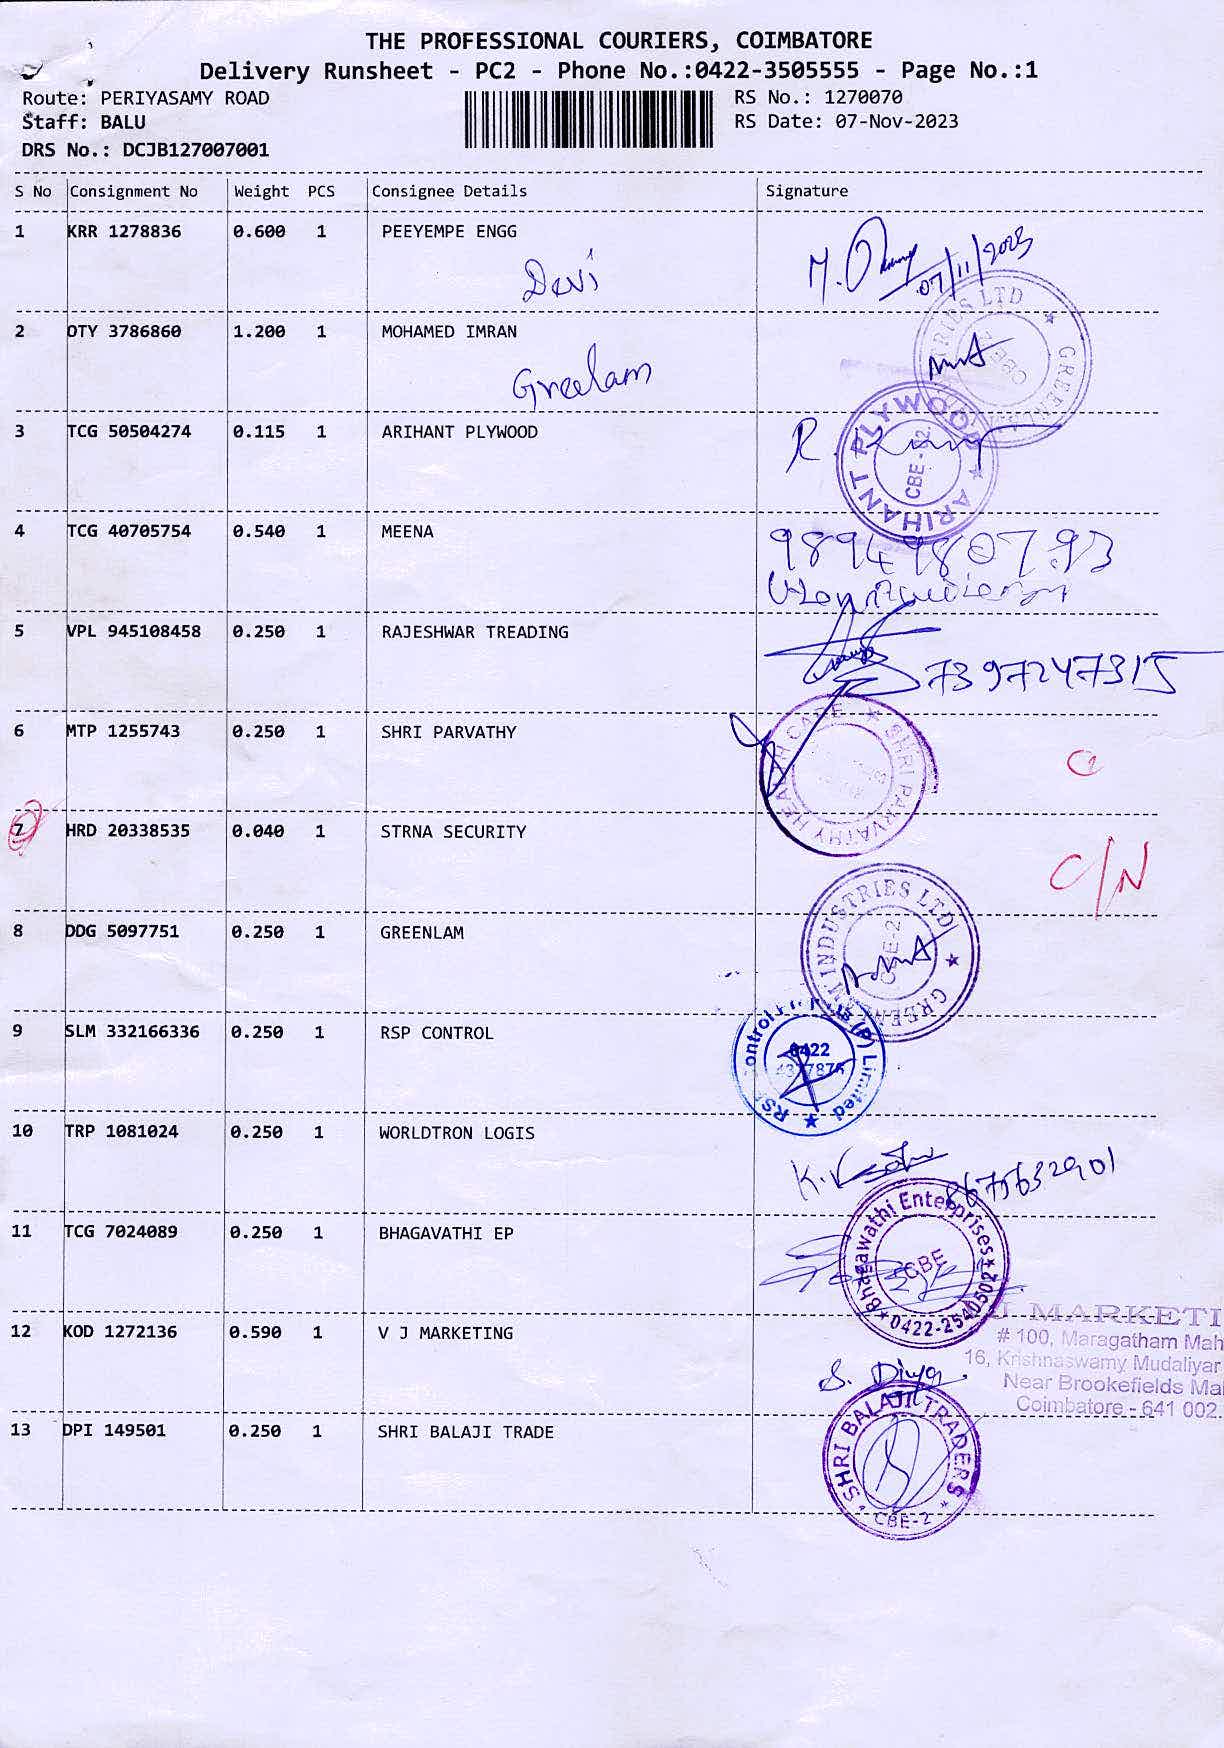 THE PROFESSIONAL COURIERS, COIMBATORE
Delivery Runsheet - PC2 - Phone No.:0422-3505555 - Page No.:1
Route: PERIYASAMY ROAD
RS No.: 1270070
Staff: BALU
RS Date: 07-Nov-2023
DRS No.: DCJB127007001
S No Consignment No Weight PCS Consignee Details Signature
1 KRR 1278836 0.600 1 PEEYEMPE ENGG
Devi
07/11/2023
2 OTY 3786860 1.200 1 MOHAMED IMRAN
Greelam
3 TCG 50504274 0.115 1 ARIHANT PLYWOOD
ARIHANT PLYWOOD
4 TCG 40705754 0.540 1 MEENA
9894980793
5 VPL 945108458 0.250 1 RAJESHWAR TREADING
7397247315
6 MTP 1255743 0.250 1 SHRI PARVATHY
SHRI PARVATHY HEALTH CARE
7 HRD 20338535 0.040 1 STRNA SECURITY
C/N
8 DDG 5097751 0.250 1 GREENLAM
INDUSTRIES LTD
CBE-2
9 SLM 332166336 0.250 1 RSP CONTROL
(P) Limited
0422
10 TRP 1081024 0.250 1 WORLDTRON LOGIS
8675632901
11 TCG 7024089 0.250 1 BHAGAVATHI EP
Bhagawathi Enterprises
CBE
0422-2540502
12 KOD 1272136 0.590 1 V J MARKETING
J MARKETI
# 100, Maragatham Mah
16, Krishnaswamy Mudaliyar
Near Brookefields Mal
Coimbatore - 641 002.
S. Divya
13 DPI 149501 0.250 1 SHRI BALAJI TRADE
SHRI BALAJI TRADERS
CBE-2